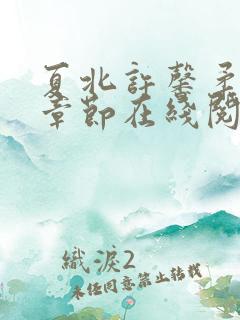 夏北許馨柔
章節在綫閱
織淚2
未經同意禁止轉載